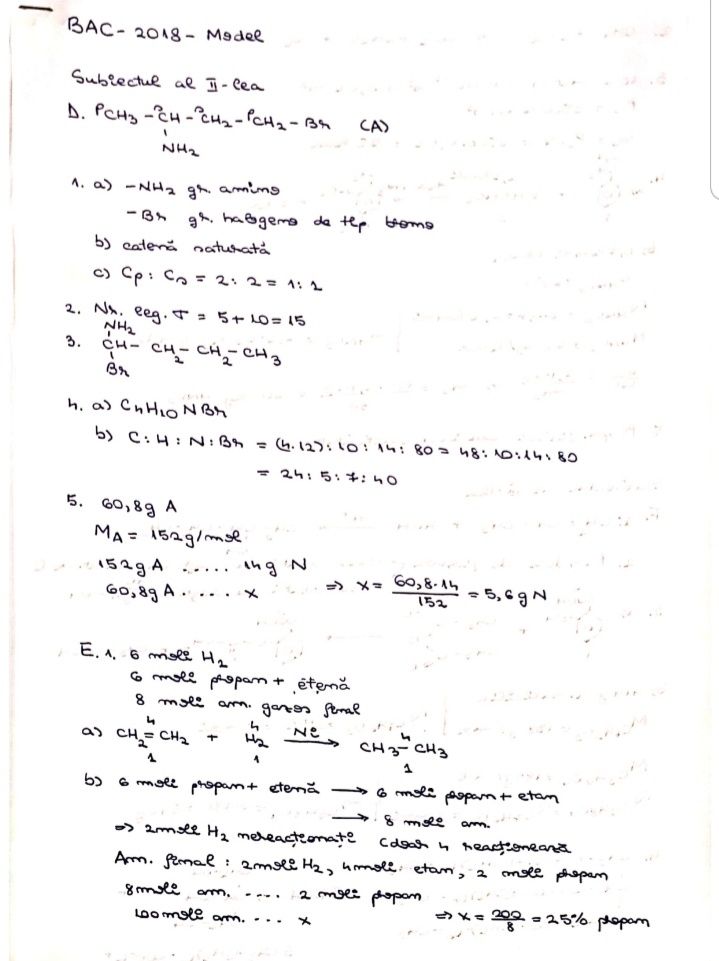 BAC - 2018 - Model
Subiectul al II-lea
D. ᴾCH₃ - ˢCH - ˢCH₂ - ᴾCH₂ - Br (A)
NH₂
1. a) -NH₂ gr. amino
-Br gr. halogeno de tip bromo
b) catenă saturată
c) Cp : Cs = 2 : 2 = 1 : 1
2. Nr. leg. σ = 5 + 10 = 15
NH₂
3. CH - CH₂ - CH₂ - CH₃
Br
4. a) C₄H₁₀NBr
b) C : H : N : Br = (4·12) : 10 : 14 : 80 = 48 : 10 : 14 : 80
= 24 : 5 : 7 : 40
5. 60,8g A
M_A = 152g/mol
152g A ..... 14g N
60,8g A ..... x ⇒ x = 60,8·14/152 = 5,6g N
E. 1. 6 moli H₂
6 moli propan + etenă
8 moli am. gazos final
4 4 4
a) CH₂ = CH₂ + H₂ Ni → CH₃ - CH₃
1 1 1
b) 6 moli propan + etenă → 6 moli propan + etan
→ 8 moli am.
⇒ 2 moli H₂ nereacționate (doar 4 reacționează
Am. final : 2 moli H₂, 4 moli etan, 2 moli propan
8 moli am. .... 2 moli propan
100 moli am. ... x ⇒ x = 200/8 = 25% propan